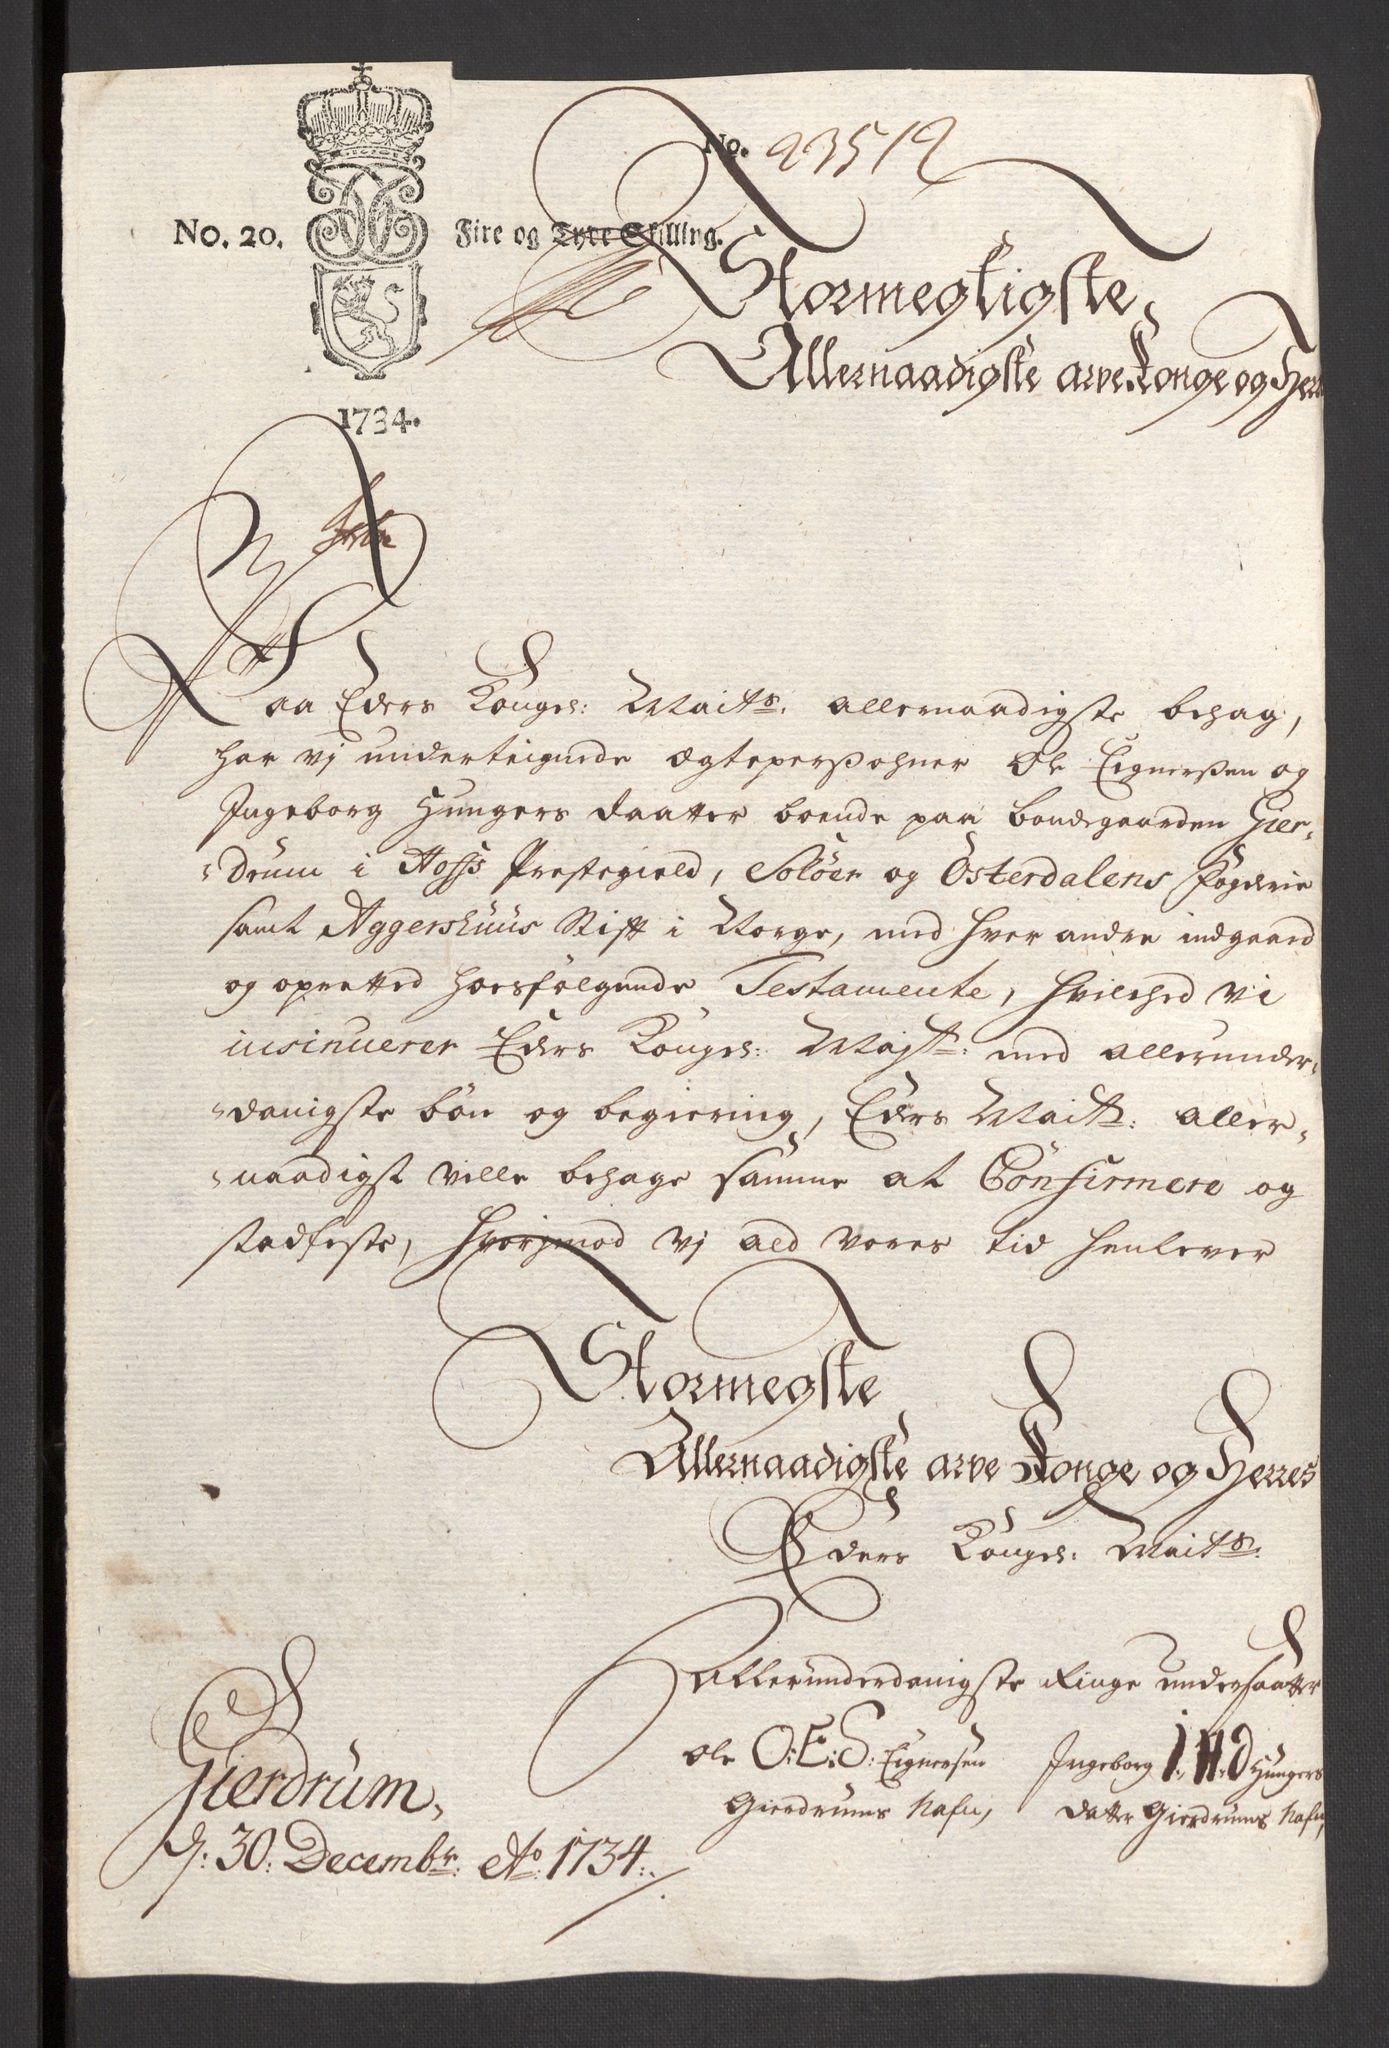 No. 23512
No. 20. Fire og Tyve Skilling.
1734.
Stormegtigste,
Allernaadigste arve Konge og Herr
Paa Eders Kongel: Maits. allernaadigste behag,
har vj underteignede Ægtepersohner Ole Eignerssen og
Ingeborg Hungers daatter boende paa bondegaarden Gier-
-drum i Hoffs Prestegield, Soløer og Österdalens fogderie
samt Aggershuus Stift i Norge, med hver andre indgaaed
og oprætted hoesfølgende Testamente, hvilched vi
insinuerer Eders Kongel: Majt: med allerunder-
-danigste bön og begiering, Eders Mait: aller-
-naadigst ville behage samme at Confirmere og
stadfeste, hvorjmod vj ald vores tid henlever
Stormegste
Allernaadigste arve Konge og Herres
Eders Kongel: Maits.
Allerunderdanigste ringe undersaatter
Ole O:E:S: Eignersen Ingeborg I.H.d Hungers
Gierdrums Nafn, datter Gierdrums Nafn,
Gierdrum,
d: 30: Decembr: Ao 1734.